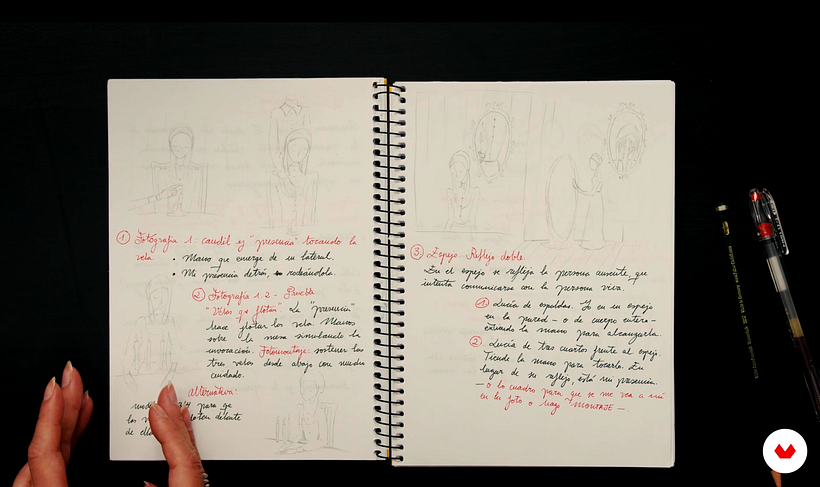 ① Fotografía 1 candil y "presencia" tocando la
vela.
• Mano que emerge de su lateral.
• Mi presencia detrás, rodeándola.
② Fotografía 1.2 - Prueba
"Velas que flotan" La "presencia"
hace flotar las velas. Manos
sobre la mesa simulando la
invocación. Fotomontaje: sostener las
tres velas desde abajo con mucho
cuidado.
Alternativa:
3/4 para que
las delante
de ella
③ Espejo. Reflejo doble.
En el espejo se refleja la persona ausente, que
intenta comunicarse con la persona viva.
① Lucía de espaldas. Yo en un espejo
en la pared - o de cuerpo entero -
extiendo la mano para alcanzarla.
② Lucía de tres cuartos frente al espejo.
Tiende la mano para tocarlo. En
lugar de su reflejo, está mi presencia.
- o lo cuadro para que se me vea a mí
en la foto o hago "MONTAJE" -